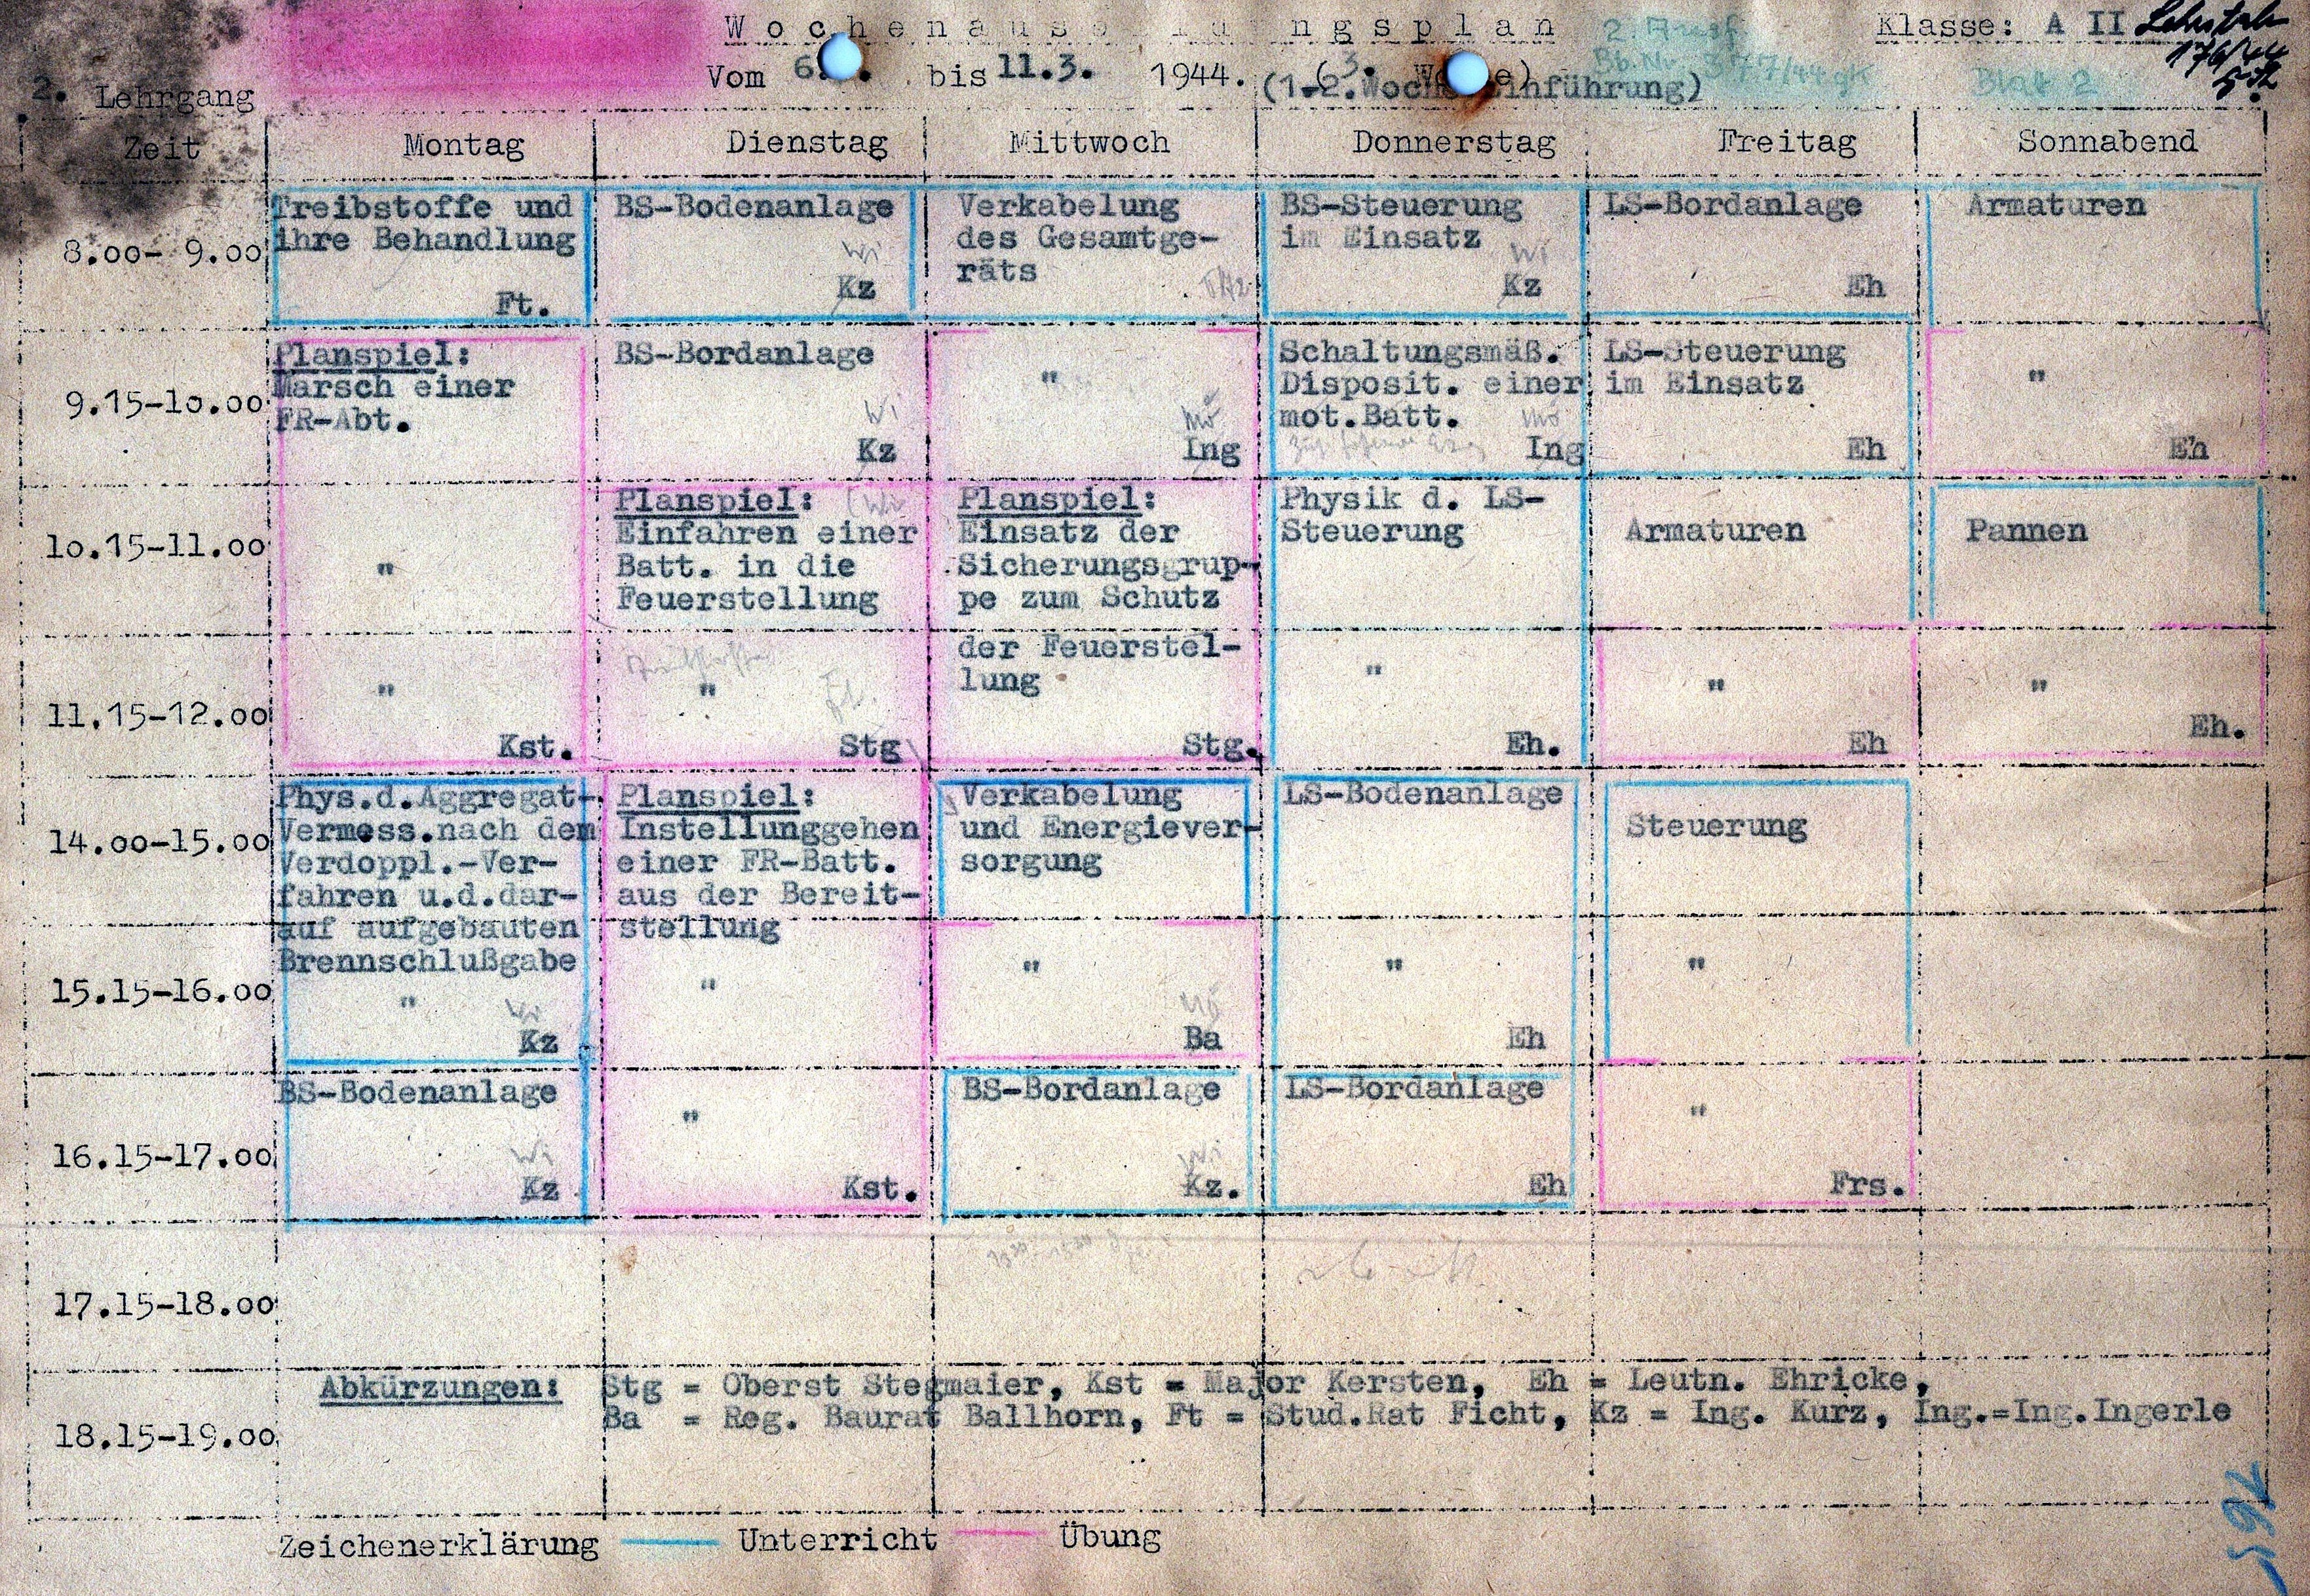 Wochenaus
Klasse: A II
Vom 6. bis 11.3. 1944. (3.
(1.-2.Woch
Bb.Nr. 377/44 gK
Blatt 2
2. Lehrgang
Zeit Montag Dienstag Mittwoch Donnerstag Freitag Sonnabend
8.00- 9.00
Treibstoffe und
ihre Behandlung
Ft.
BS-Bodenanlage
Wi
Kz
Verkabelung
des Gesamtge-
räts
BS-Steuerung
im Einsatz
Wi
Kz
LS-Bordanlage
Eh
Armaturen
9.15-10.00
Planspiel:
Marsch einer
FR-Abt.
BS-Bordanlage
Wi
Kz
"
Mö
Ing
Schaltungsmäß.
Disposit. einer
mot.Batt.
Mö
Ing
LS-Steuerung
im Einsatz
Eh
"
Eh
10.15-11.00
"
Planspiel: (Wi
Einfahren einer
Batt. in die
Feuerstellung
Planspiel:
Einsatz der
Sicherungsgrup-
pe zum Schutz
Physik d. LS-
Steuerung
Armaturen
Pannen
11.15-12.00
"
Kst.
"
Stg
der Feuerstel-
lung
Stg.
"
Eh.
"
Eh
"
Eh.
14.00-15.00
Phys.d.Aggregat-
Vermess.nach dem
Verdoppl.-Ver-
fahren u.d.dar-
Planspiel:
Instellunggehen
einer FR-Batt.
aus der Bereit-
Verkabelung
und Energiever-
sorgung
LS-Bodenanlage
Steuerung
15.15-16.00
auf aufgebauten
Brennschlußgabe
"
Wi
Kz
stellung
"
"
Mö
Ba
"
Eh
"
16.15-17.00
BS-Bodenanlage
Wi
Kz
"
Kst.
BS-Bordanlage
Wi
Kz.
LS-Bordanlage
Eh
"
Frs.
17.15-18.00
18.15-19.00
Abkürzungen: Stg = Oberst Stegmaier, Kst = Major Kersten, Eh = Leutn. Ehricke,
Ba = Reg. Baurat Ballhorn, Ft = Stud.Rat Ficht, Kz = Ing. Kurz, Ing.=Ing.Ingerle
Zeichenerklärung Unterricht Übung